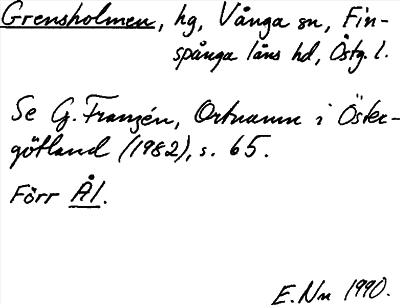 Grensholmen, hg, Vånga sn, Fin-
spånga läns hd, Östg. l.
Se G. Franzén, Ortnamn i Öster-
götland (1982), s. 65.
Förr Ål.
E. Nn 1990.